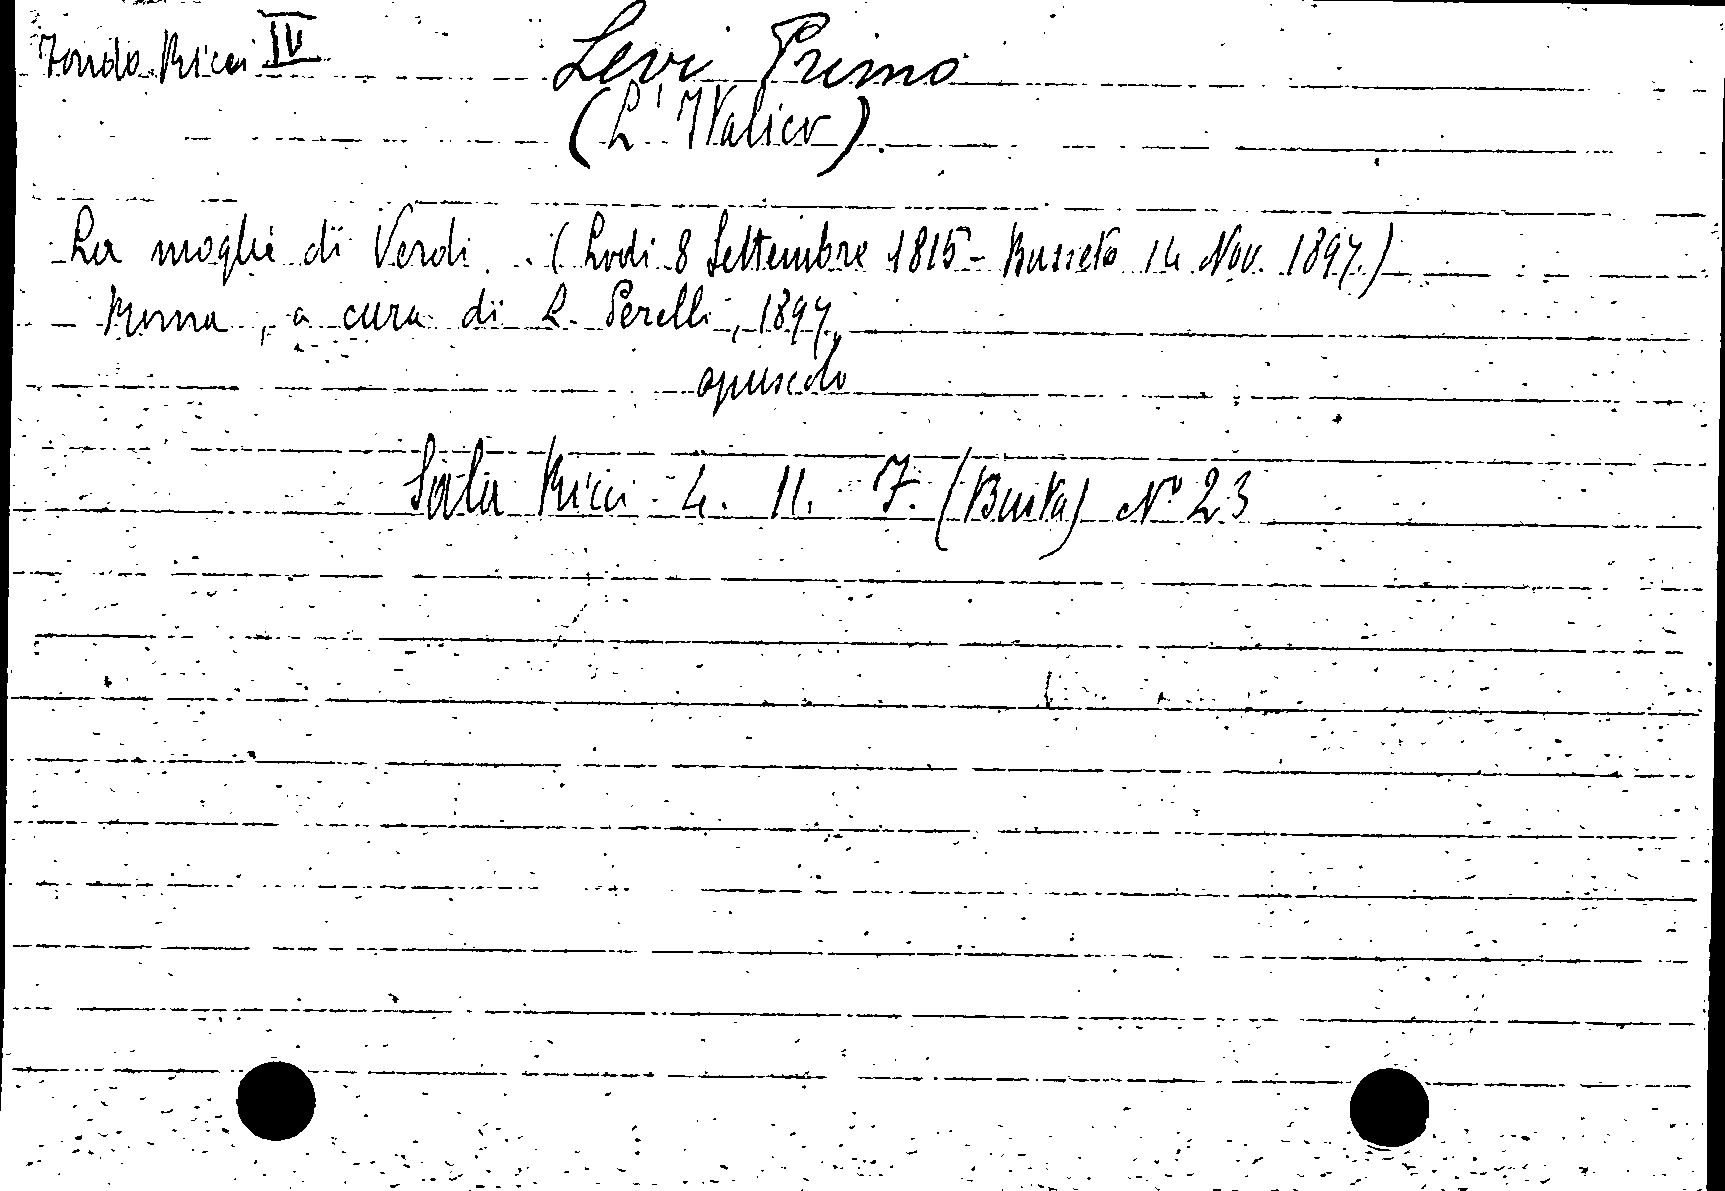 Fondo Ricci IV
Levi Primo
(L'Italico).
La moglie di Verdi. (Lodi 8 Settembre 1815 - Busseto 14 Nov. 1897.)
Roma, a cura di L. Perelli, 1897,
opuscolo
Sala Ricci 4. 11. 7. (Busta) N° 23